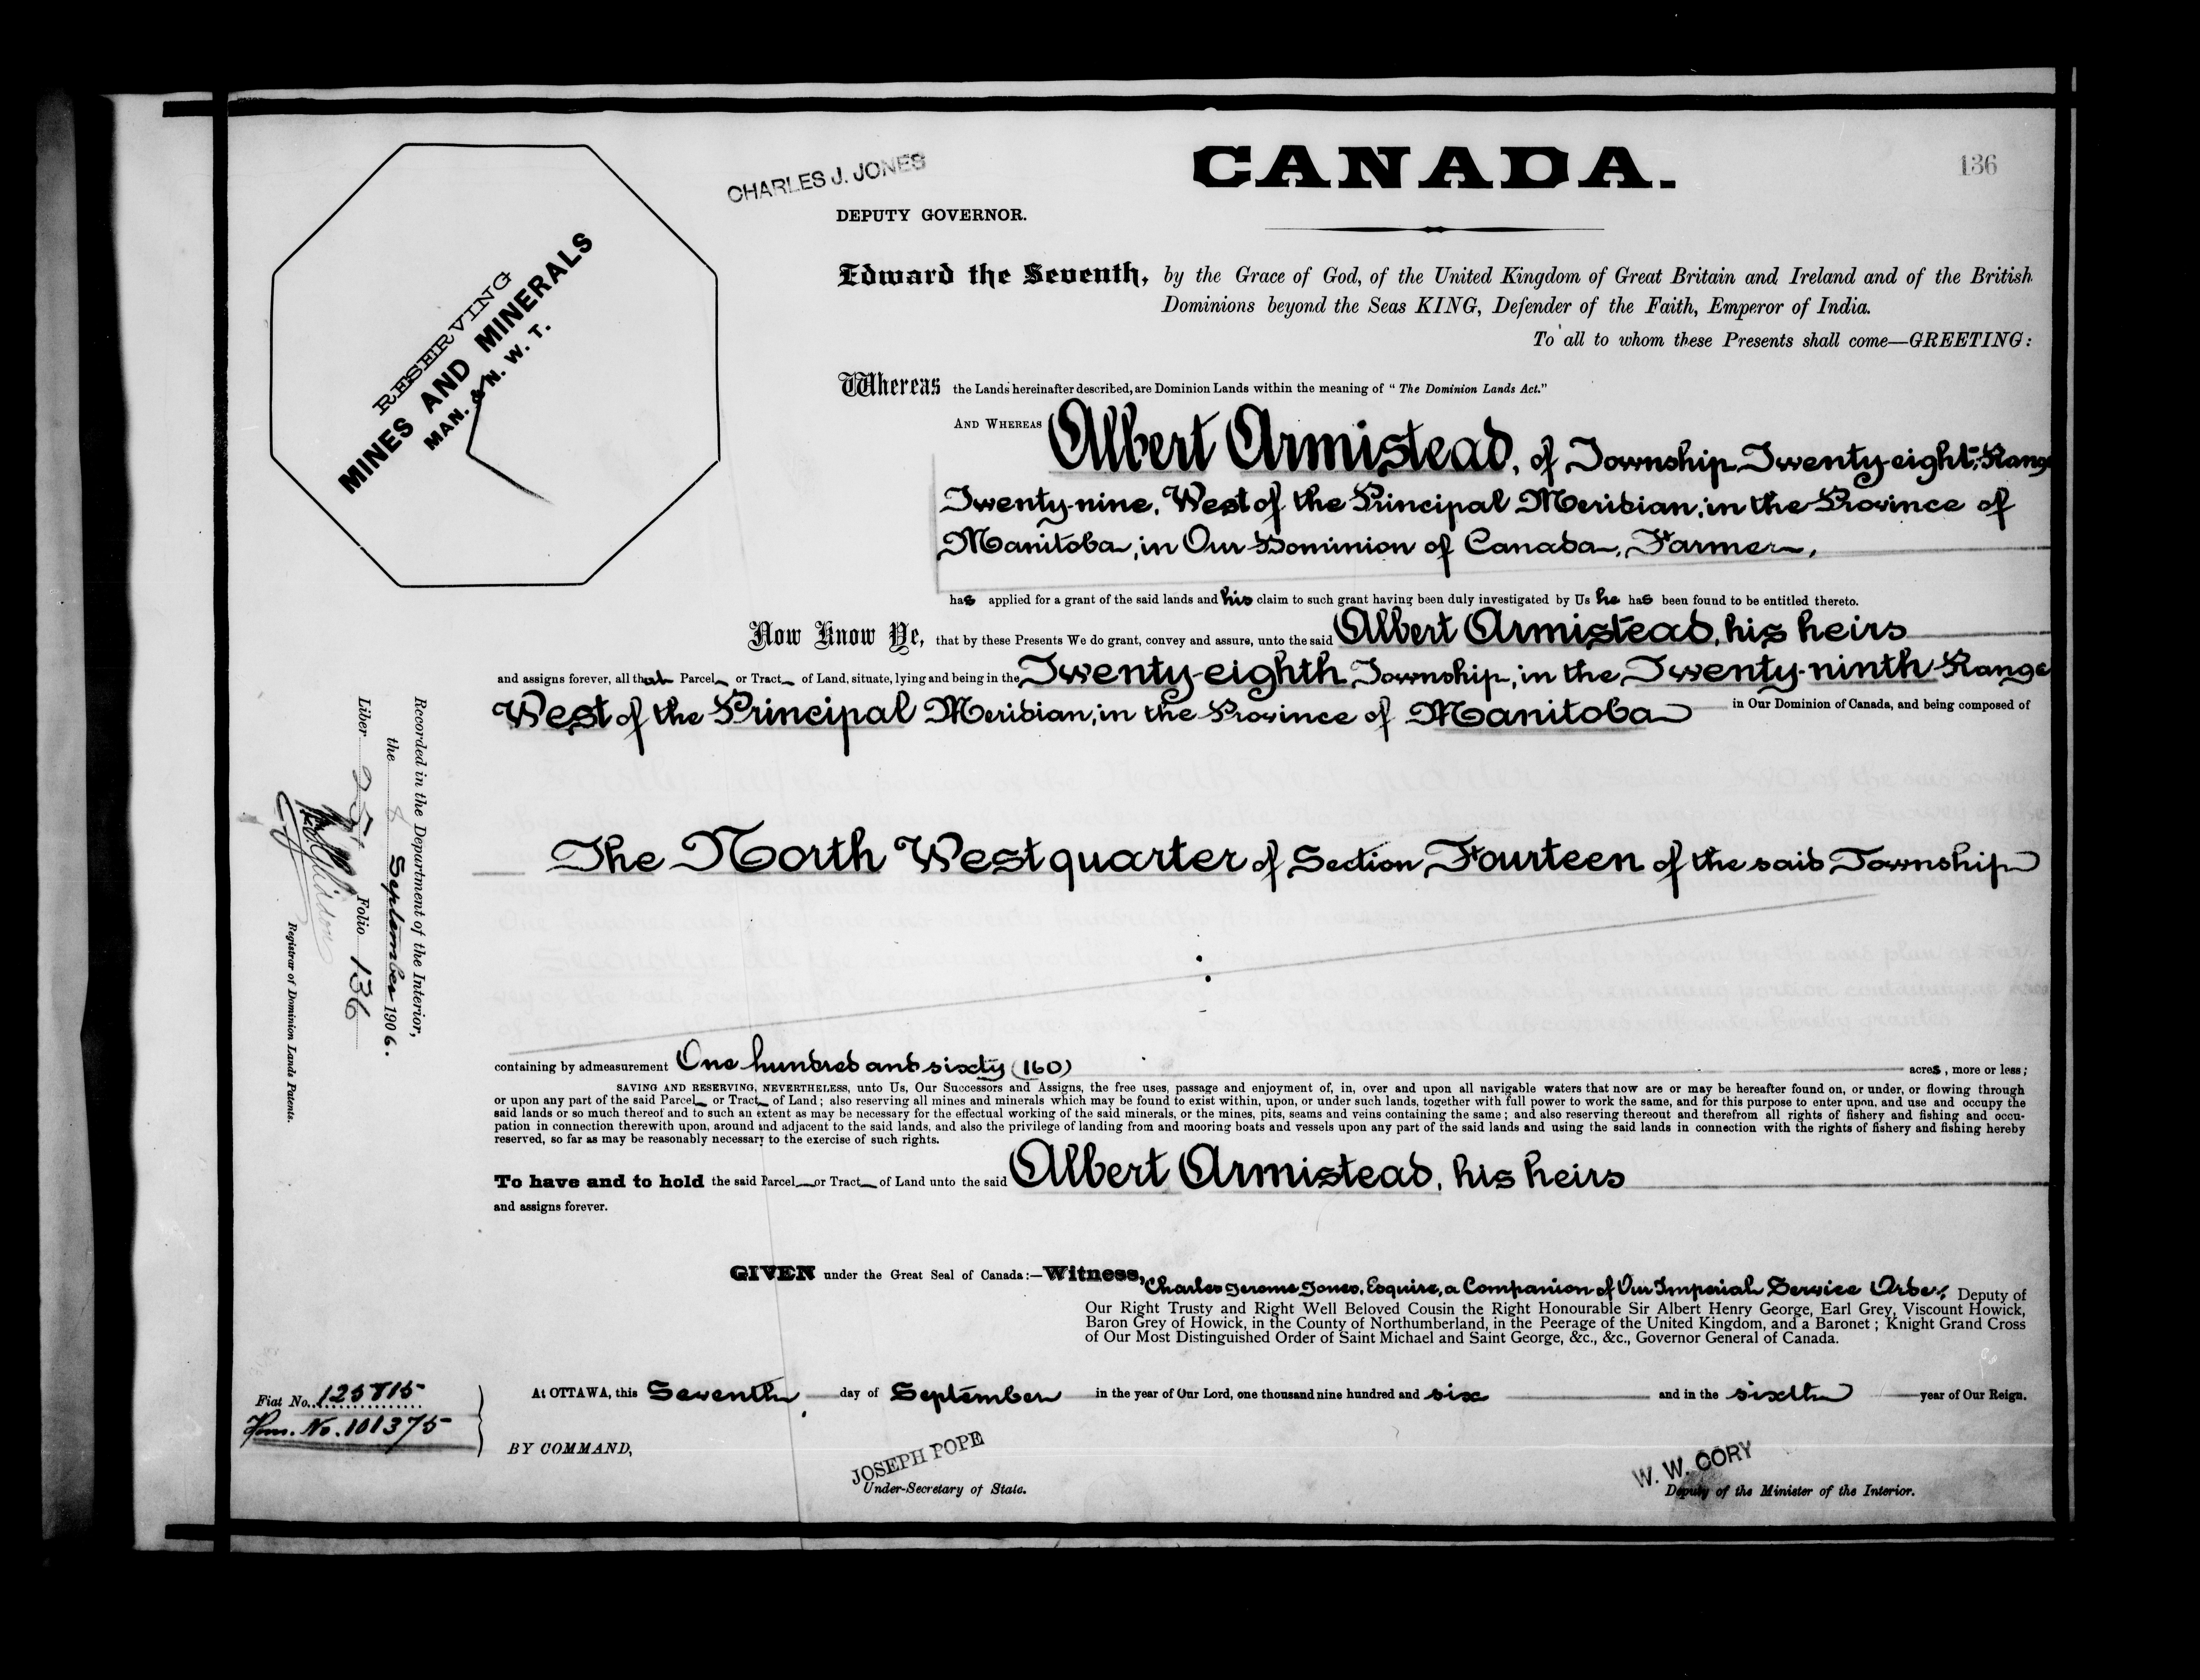 CHARLES J. JONES
CANADA.
136
DEPUTY GOVERNOR.
RESERVING
MINES AND MINERALS
MAN. & N. W. T.
Edward the Seventh, by the Grace of God, of the United Kingdom of Great Britain and Ireland and of the British
Dominions beyond the Seas KING, Defender of the Faith, Emperor of India.
To all to whom these Presents shall come—GREETING:
Whereas the Lands hereinafter described, are Dominion Lands within the meaning of "The Dominion Lands Act."
AND WHEREAS Albert Armistead, of Township Twenty-eight, Range
Twenty-nine, West of the Principal Meridian, in the Province of
Manitoba, in Our Dominion of Canada, Farmer,
has applied for a grant of the said lands and his claim to such grant having been duly investigated by Us he has been found to be entitled thereto.
Now Know Ye, that by these Presents We do grant, convey and assure, unto the said Albert Armistead, his heirs
and assigns forever, all that Parcel or Tract of Land, situate, lying and being in the Twenty-eighth Township, in the Twenty-ninth Range
West of the Principal Meridian, in the Province of Manitoba in Our Dominion of Canada, and being composed of
The North West quarter of Section Fourteen of the said Township
containing by admeasurement One hundred and sixty (160) acres, more or less;
SAVING AND RESERVING, NEVERTHELESS, unto Us, Our Successors and Assigns, the free uses, passage and enjoyment of, in, over and upon all navigable waters that now are or may be hereafter found on, or under, or flowing through
or upon any part of the said Parcel or Tract of Land; also reserving all mines and minerals which may be found to exist within, upon, or under such lands, together with full power to work the same, and for this purpose to enter upon, and use and occupy the
said lands or so much thereof and to such an extent as may be necessary for the effectual working of the said minerals, or the mines, pits, seams and veins containing the same; and also reserving thereout and therefrom all rights of fishery and fishing and occu-
pation in connection therewith upon, around and adjacent to the said lands, and also the privilege of landing from and mooring boats and vessels upon any part of the said lands and using the said lands in connection with the rights of fishery and fishing hereby
reserved, so far as may be reasonably necessary to the exercise of such rights.
To have and to hold the said Parcel or Tract of Land unto the said Albert Armistead, his heirs
and assigns forever.
GIVEN under the Great Seal of Canada:—Witness, Charles Jerome Jones, Esquire, a Companion of Our Imperial Service Order, Deputy of
Our Right Trusty and Right Well Beloved Cousin the Right Honourable Sir Albert Henry George, Earl Grey, Viscount Howick,
Baron Grey of Howick, in the County of Northumberland, in the Peerage of the United Kingdom, and a Baronet; Knight Grand Cross
of Our Most Distinguished Order of Saint Michael and Saint George, &c., &c., Governor General of Canada.
At OTTAWA, this Seventh day of September in the year of Our Lord, one thousand nine hundred and six and in the sixth year of Our Reign.
BY COMMAND,
JOSEPH POPE
Under-Secretary of State.
W. W. CORY
Deputy of the Minister of the Interior.
Fiat No. 125815
Hom. No. 101375
Recorded in the Department of the Interior,
the 8 September 1906.
Liber Folio 136
Registrar of Dominion Lands Patents.